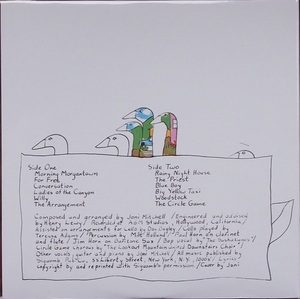 Side One
Morning Morgantown
For Free
Conversation
Ladies of the Canyon
Willy
The Arrangement
Side Two
Rainy Night House
The Priest
Blue Boy
Big Yellow Taxi
Woodstock
The Circle Game
Composed and arranged by Joni Mitchell / Engineered and advised
by Henry Lewy / Recorded at A&M Studios, Hollywood, California /
Assisted on arrangements for cello by Don Bagley / Cello played by
Teressa Adams / Percussion by Milt Holland / Paul Horn on clarinet
and flute / Jim Horn on Baritone Sax / Bop vocal by The Saskatunes /
Circle Game Chorus by The Lookout Mountain United Downstairs Choir /
Other vocals, guitar and piano by Joni Mitchell / All music published by
Siquomb Publishing, 55 Liberty Street, New York, N.Y. 10005 / Lyrics
copyright by and reprinted with Siquomb's permission / Cover by Joni